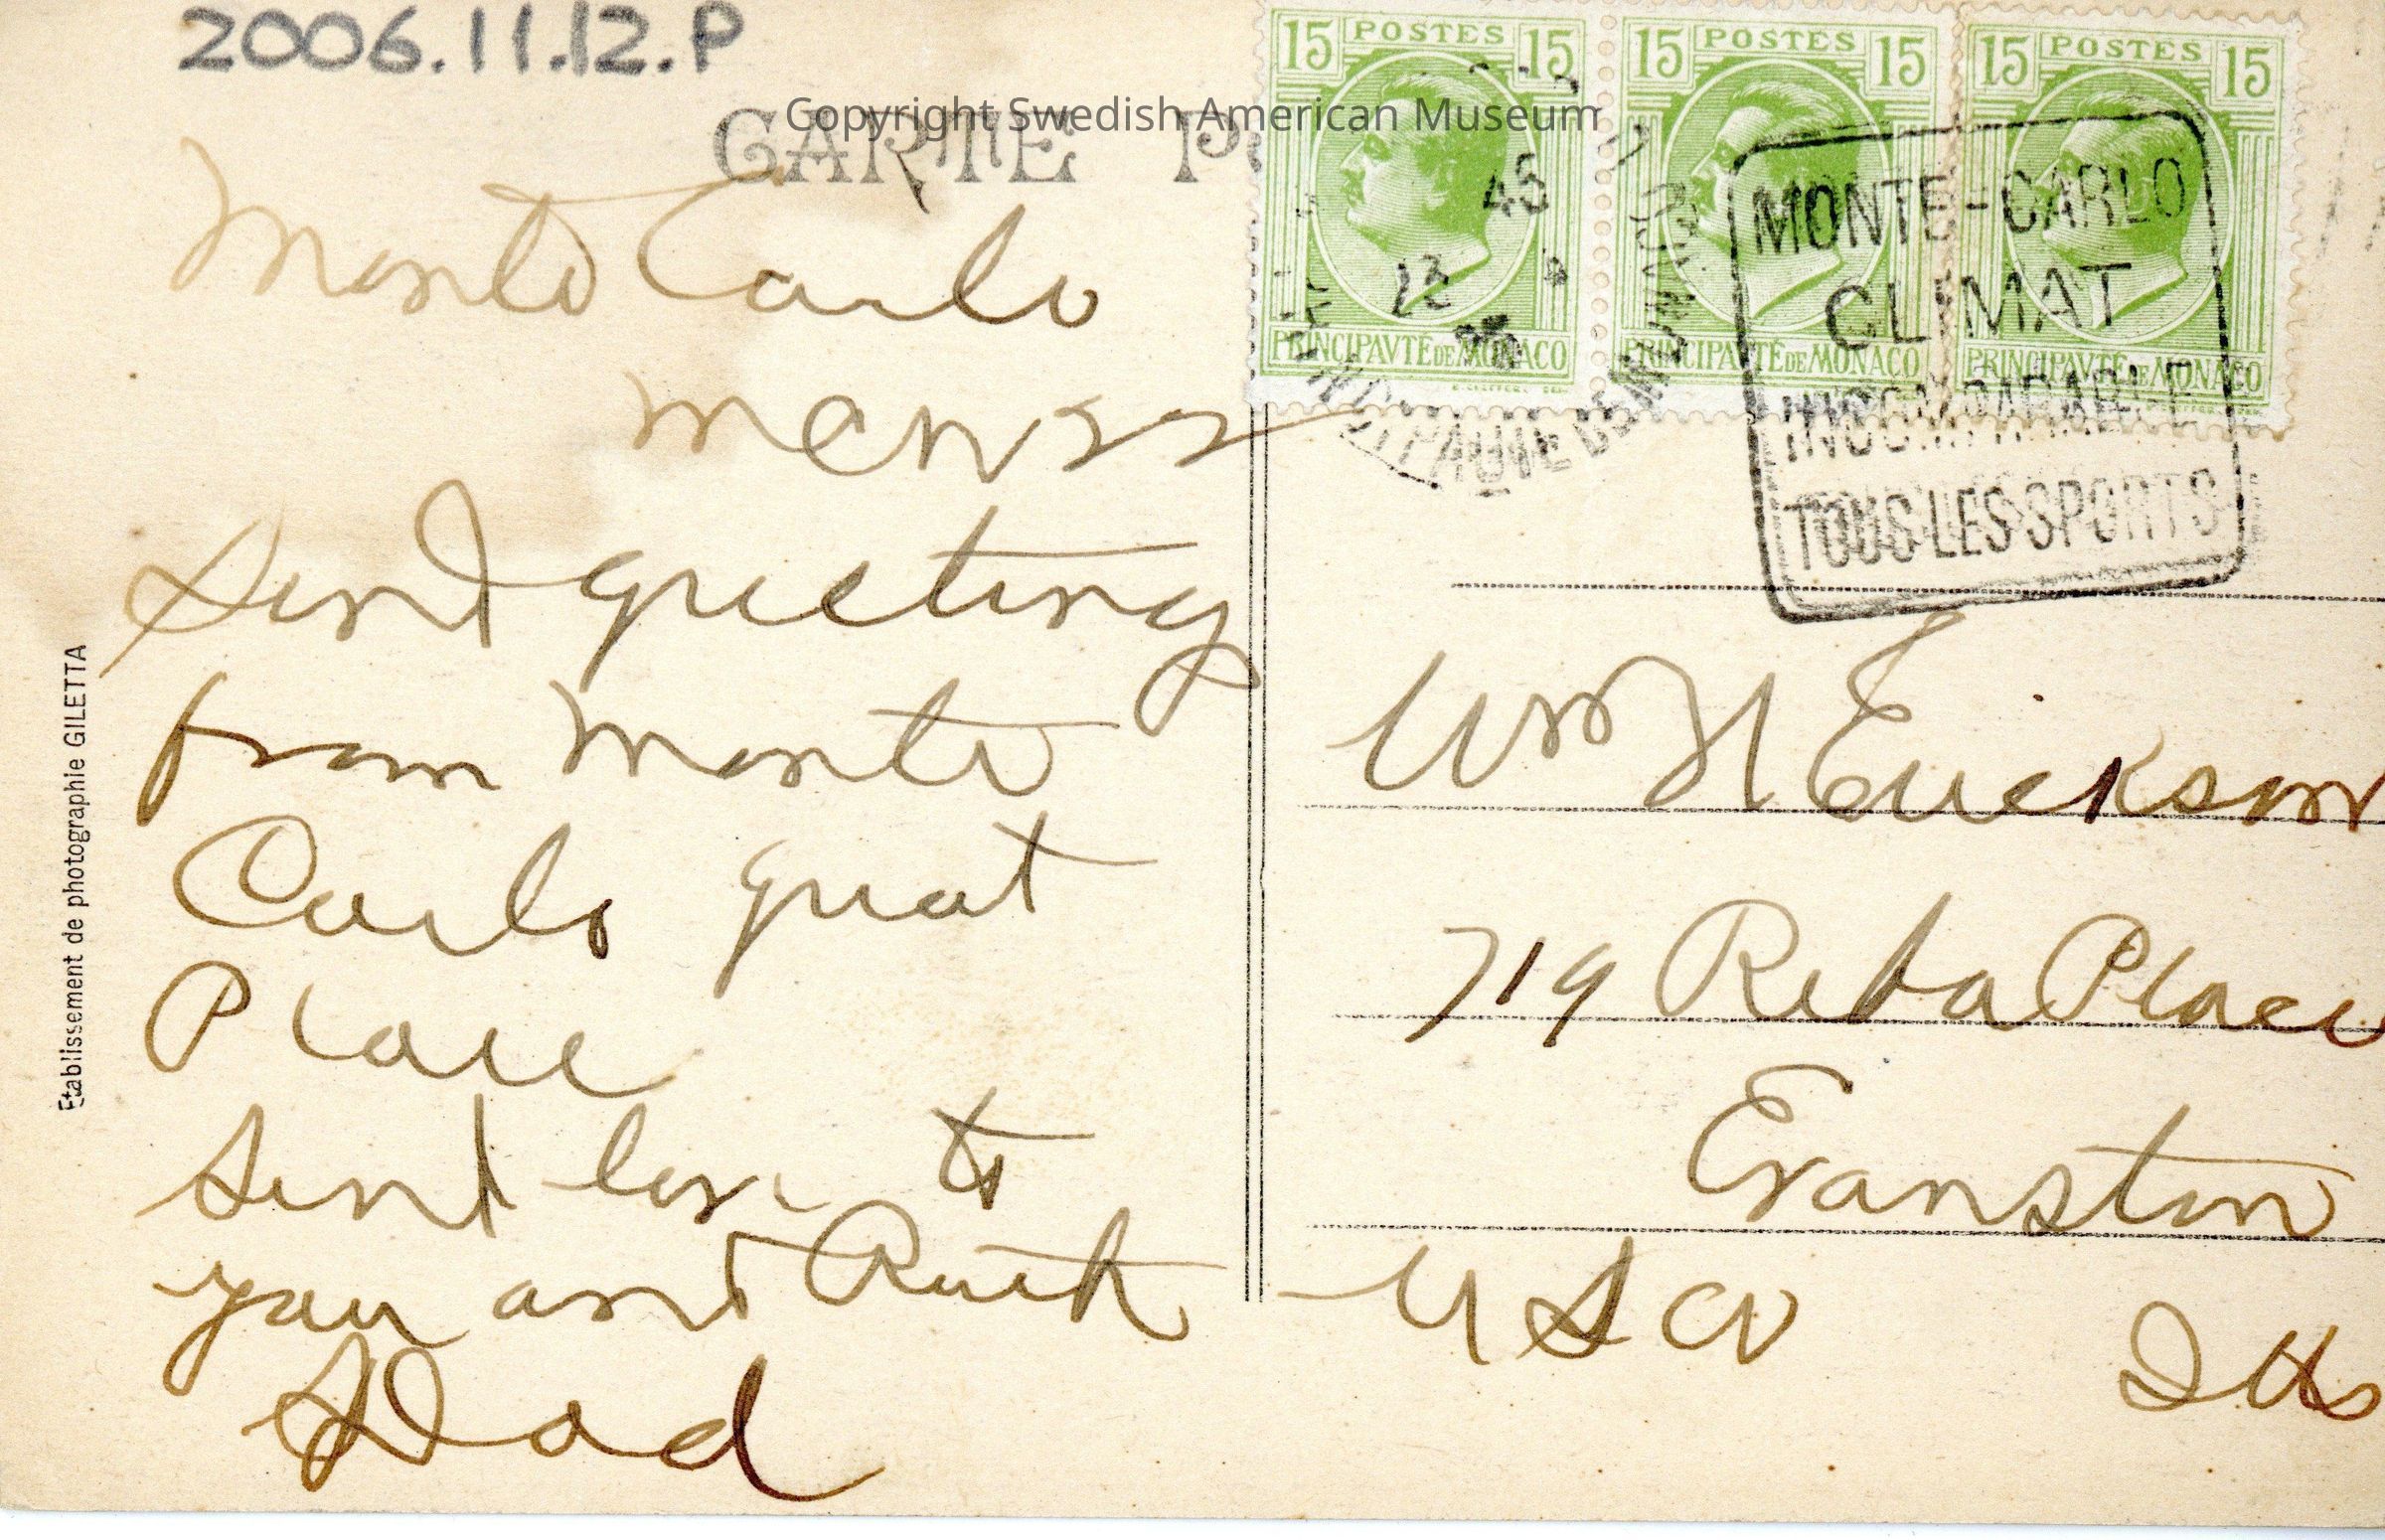 2006.11.12.P
Copyright Swedish American Museum
CARTE
Monte Carlo
Send greeting
from Monte
Carlo great
Place
Send love to
you and Ruth
Dad
Etablissement de photographie GILETTA
15 POSTES 15
PRINCIPAVTÉ DE MONACO
15 POSTES 15
PRINCIPAVTÉ DE MONACO
15 POSTES 15
PRINCIPAVTÉ DE MONACO
MONTE-CARLO
CLIMAT
INCOMPARABLE
TOUS LES SPORTS
Wm H Erickson
719 Reba Place
Evanston
USA
Ills